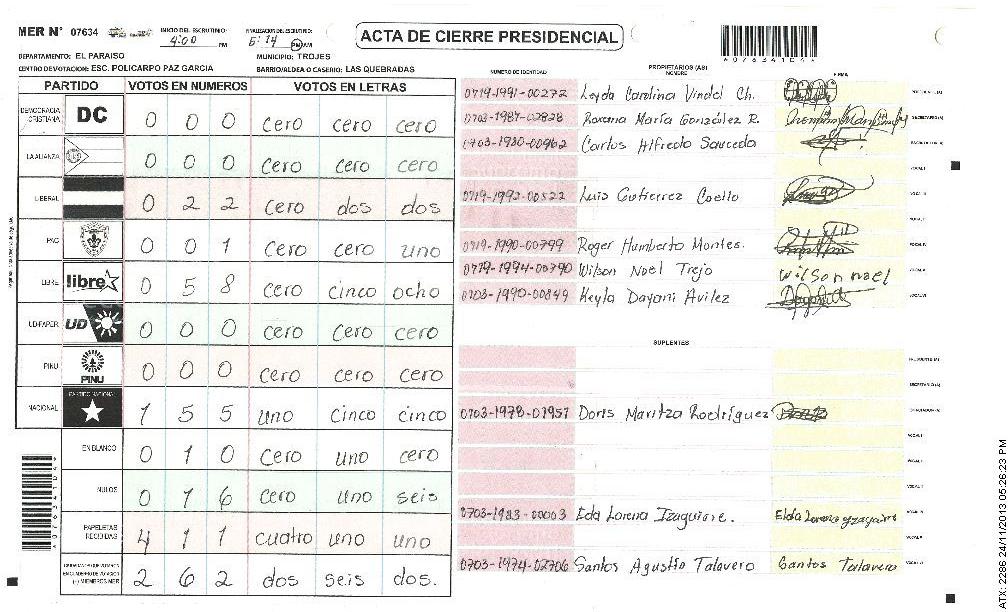 MER N° 07634
INICIO DEL ESCRUTINIO: 4:00 PM
FINALIZACION DEL ESCRUTINIO: 5:14 PM AM
ACTA DE CIERRE PRESIDENCIAL
DEPARTAMENTO: EL PARAISO
MUNICIPIO: TROJES
CENTRO DE VOTACION: ESC. POLICARPO PAZ GARCIA
BARRIO/ALDEA O CASERIO: LAS QUEBRADAS
PARTIDO VOTOS EN NUMEROS VOTOS EN LETRAS
DEMOCRACIA CRISTIANA DC 0 0 0 cero cero cero
LA ALIANZA 0 0 0 cero cero cero
LIBERAL 0 2 2 cero dos dos
PAC 0 0 1 cero cero uno
LIBRE libre 0 5 8 cero cinco ocho
UD-FAPER UD 0 0 0 cero cero cero
PINU PINU 0 0 0 cero cero cero
NACIONAL PARTIDO NACIONAL 1 5 5 uno cinco cinco
EN BLANCO 0 1 0 cero uno cero
NULOS 0 1 6 cero uno seis
PAPELETAS RECIBIDAS 4 1 1 cuatro uno uno
2 6 2 dos seis dos.
NUMERO DE IDENTIDAD PROPIETARIOS (AS) NOMBRE FIRMA
0719-1991-00272 Leyda Carolina Vindel Ch.
0703-1987-02828 Roxana María González R. SECRETARIO(A)
0703-1980-00962 Carlos Alfredo Saucedo
0719-1992-00522 Luis Gutierrez Coello
0719-1990-00799 Roger Humberto Montes.
0719-1994-00790 Wilson Noel Trejo wilson noel
0703-1990-00849 Keyla Dayani Avilez
SUPLENTES
0703-1978-01957 Doris Maritza Rodríguez
0703-1983-00003 Eda Lorena Izaguirre.
0703-1974-02706 Santos Agustín Talavera Santos Talavera
ATX: 2286 24/11/2013 05:26:23 PM